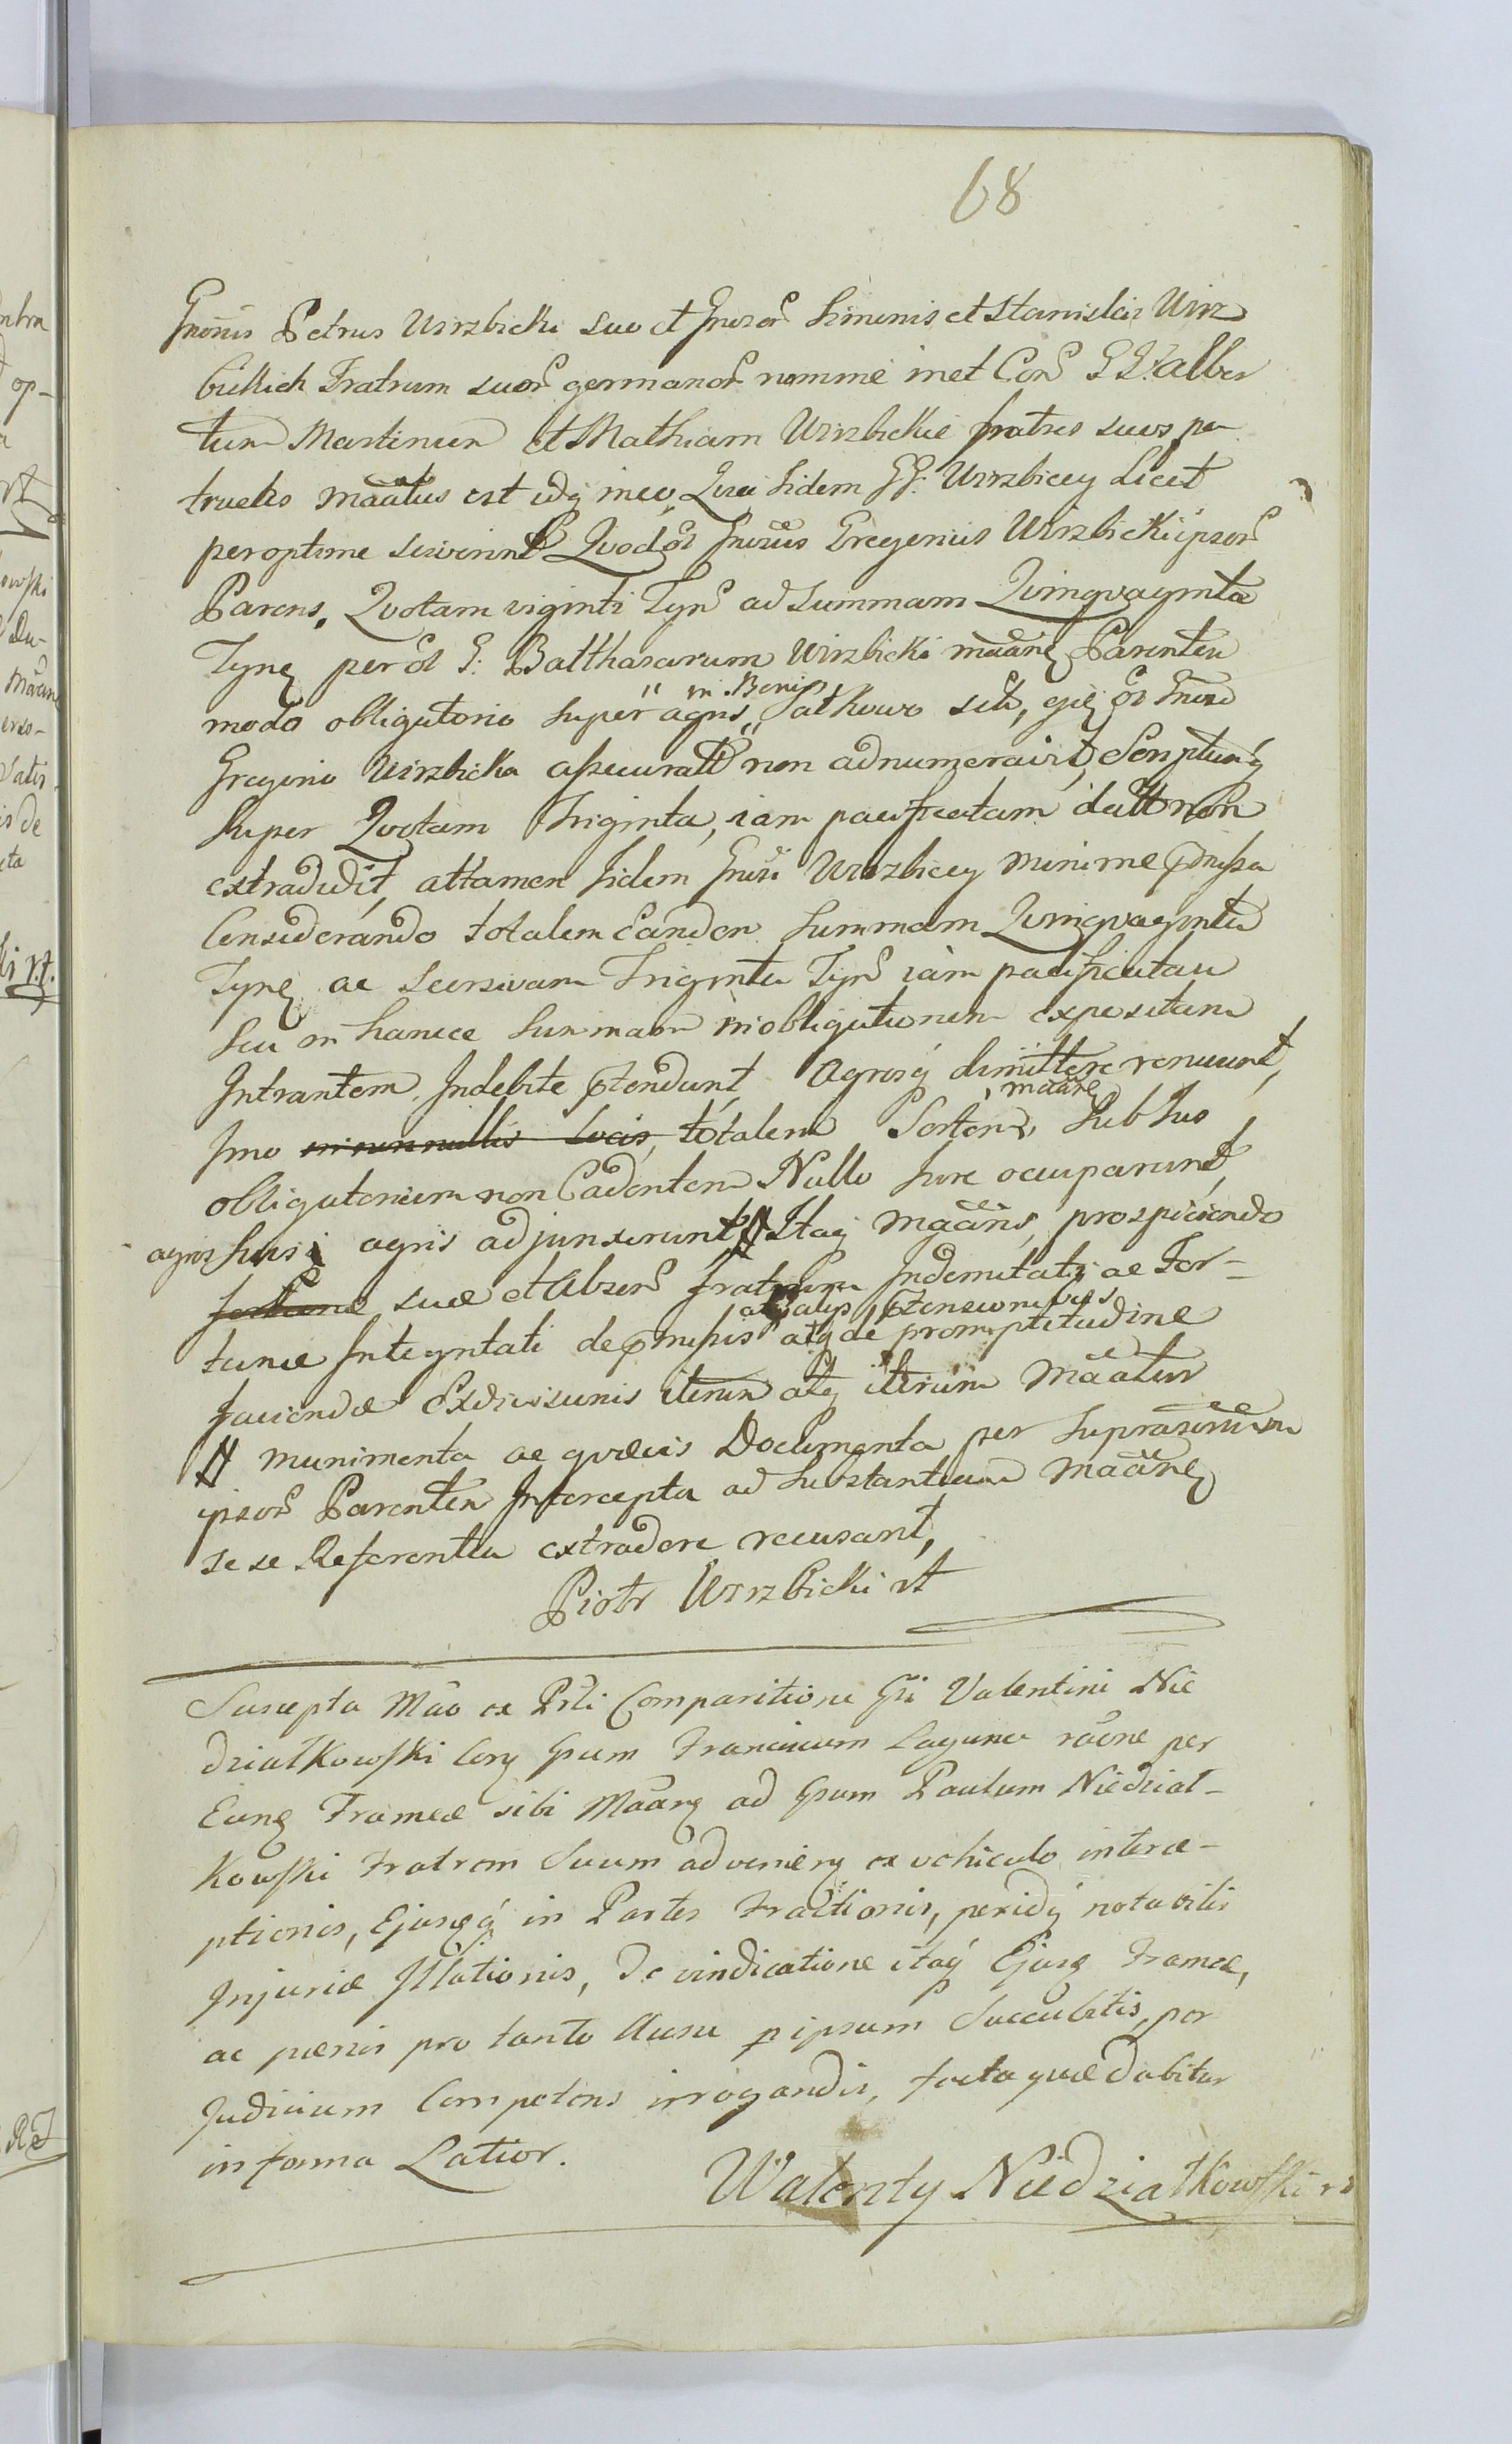 68
Petrus Wirzbicki suo et Simonis et Stanislai Wirz
bickich Fratrum suor germanor nomine inet Con G G: alber
tum Martinum et Mathiam Wirzbickie fratres suos pa
trueles maatus est idq ineo, Quia Iidem GG: Wirzbiccy licet
peroptime sciverint Quod ol Gregorius Wirzbicki ipsor
Parens, Qvotam viginti Tyn ad Summam Qvinqvaginta
Tyn per ol G: Balthasarum Wirzbicki maan Parentem
modo obligatorio super agris in Bonis sitis,
Gregorio Wirzbicki assecuratt non adnumeravit, Scriptumq
Super Qvotam Triginta, iam pacificatam datt non
extradidit, attamen Iidem Wirzbiccy minime pmissa
Considerando totalem eandem Summam Qvinqvaginta
Tyn ac seorsivam Triginta Tyn iam pacificatam
Seu in hancce Summam in obligationem expositam
Intrantem Indebite ptendunt, Agrosq dimittere renuunt,
Imo in nonnullis Locis, totalem Sortem maare Sub Jus
obligatorium non Cadentem Nullo Jure occuparunt,
agros suis agris adjunxerunt Itaq Maans, prospiciendo
fortunae suae et Absen Fratrum Indemnitati ac For-
tunae Integritati de pmissis atq aliis ptensionibus atq de promptitudine
faciendae Exdivisionis iterum atq iterum Maatur
munimenta ac qvaevis Documenta per
ipsor Parentem Intercepta ad Substantiam maan
se se Referentia extradere recusant,
Piotr Wirzbicki rt
Suscepta Mao ex Prli Comparitione Gsi Valentini Nie
działkowski Gsum Franciscum Laguna raone per
Eung Frameae sibi Maang ad Gsum Paulum Niedział-
kowski Fratrem Suum ex vehiculo interce-
ptionis, Ejusqq in Partes Fractionis, peridq notabilis
Injuriae Illationis, De vindicatione itaq Ejusq Frameae,
ac paenis pro tanto Ausu p ipsum Succubitis, per
Judicium Competens irrogandis, facta quae dabitur
in forma Latior.
Walenty Niedziałkowski